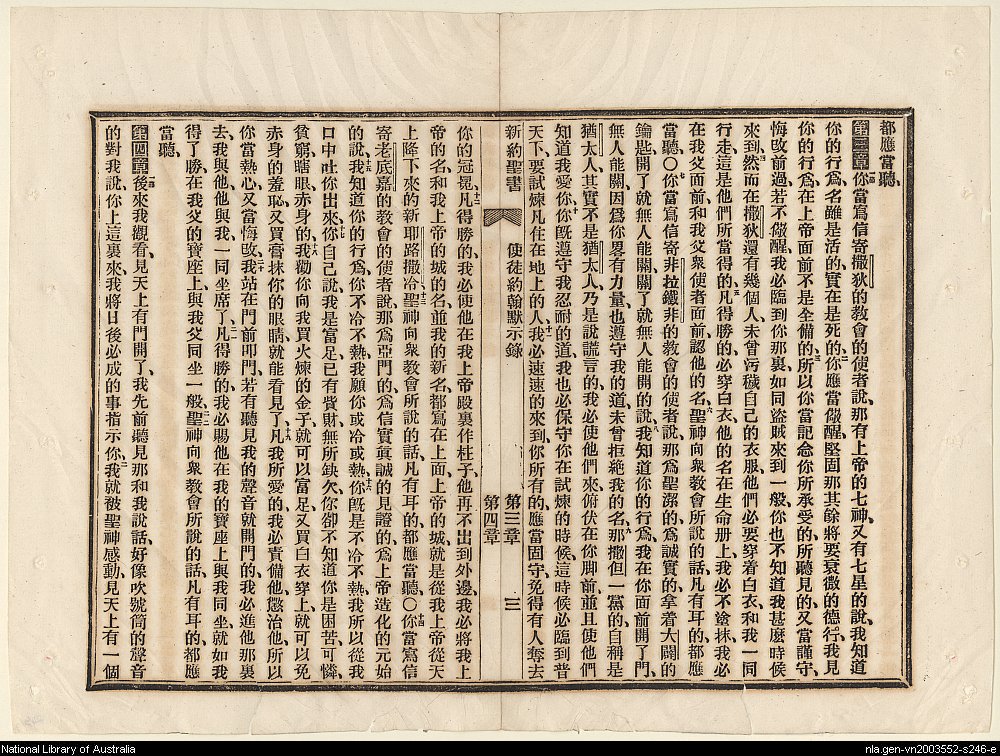 都應當聽、
第三章一你當寫信寄撒狄的教會的使者說、那有上帝的七神、又有七星的說、我知道
你的行爲、名雖是活的、實在是死的、二你應當儆醒、堅固那其餘將要衰微的德行、我見
你的行爲、在上帝面前不是全備的、三所以你當記念你所承受的所聽見的、又當謹守、
悔改前過、若不儆醒、我必臨到你那裏、如同盜賊來到一般、你也不知道我甚麼時候
來到、四然而在撒狄還有幾個人、未曾污穢自己的衣服、他們必要穿着白衣、和我一同
行走、這是他們所當得的、五凡得勝的、必穿白衣、他的名在生命册上、我必不塗抹、我必
在我父面前、和我父衆使者面前、認他的名、六聖神向衆教會所說的話、凡有耳的、都應
當聽、〇七你當寫信寄非拉鐵非的教會的使者說、那爲聖潔的、爲誠實的、拿着大闢的
鑰匙、開了就無人能關、關了就無人能開的說、八我知道你的行爲、我在你面前開了門、
無人能關、因爲你畧有力量、也遵守我的道、未曾拒絕我的名、九那撒但一黨的、自稱是
猶太人、其實不是猶太人、乃是說謊言的、我必使他們來俯伏在你脚前、並且使他們
知道我愛你、十你旣遵守我忍耐的道、我也必保守你在試煉的時候、這時候必臨到普
天下、要試煉凡住在地上的人、十一我必速速的來到、你所有的、應當固守、免得有人奪去
新約聖書 使徒約翰默示錄 第三章 第四章 三
你的冠冕、十二凡得勝的、我必使他在我上帝殿裏作柱子、他再不出到外邊、我必將我上
帝的名、和我上帝的城的名、並我的新名、都寫在上面、上帝的城、就是從我上帝從天
上降下來的新耶路撒冷、十三聖神向衆教會所說的話、凡有耳的、都應當聽、〇十四你當寫信
寄老底嘉的教會的使者說、那爲亞門的、爲信實眞誠的見證的、爲上帝造化的元始
的說、十五我知道你的行爲、你不冷不熱、我願你或冷或熱、十六你旣是不冷不熱、我所以從我
口中吐你出來、十七你自己說、我是富足、已有貲財、無所缺欠、你卻不知道你是困苦、可憐、
貧窮、瞎眼、赤身的、十八我勸你向我買火煉的金子、就可以富足、又買白衣穿上、就可以免
赤身的羞恥、又買膏抹你的眼睛、就能看見了、十九凡我所愛的、我必責備他、懲治他、所以
你當熱心、又當悔改、二十我站在門前叩門、若有聽見我的聲音就開門的、我必進他那裏
去、我與他、他與我、一同坐席了、二一凡得勝的、我必賜他在我的寶座上、與我同坐、就如我
得了勝、在我父的寶座上、與我父同坐一般、二二聖神向衆教會所說的話、凡有耳的、都應
當聽、
第四章一後來我觀看、見天上有門開了、我先前聽見那和我說話、好像吹號筒的聲音
的、對我說、你上這裏來、我將日後必成的事指示你、二我就被聖神感動、見天上有一個
National Library of Australia
nla.gen-vn2003552-s246-e